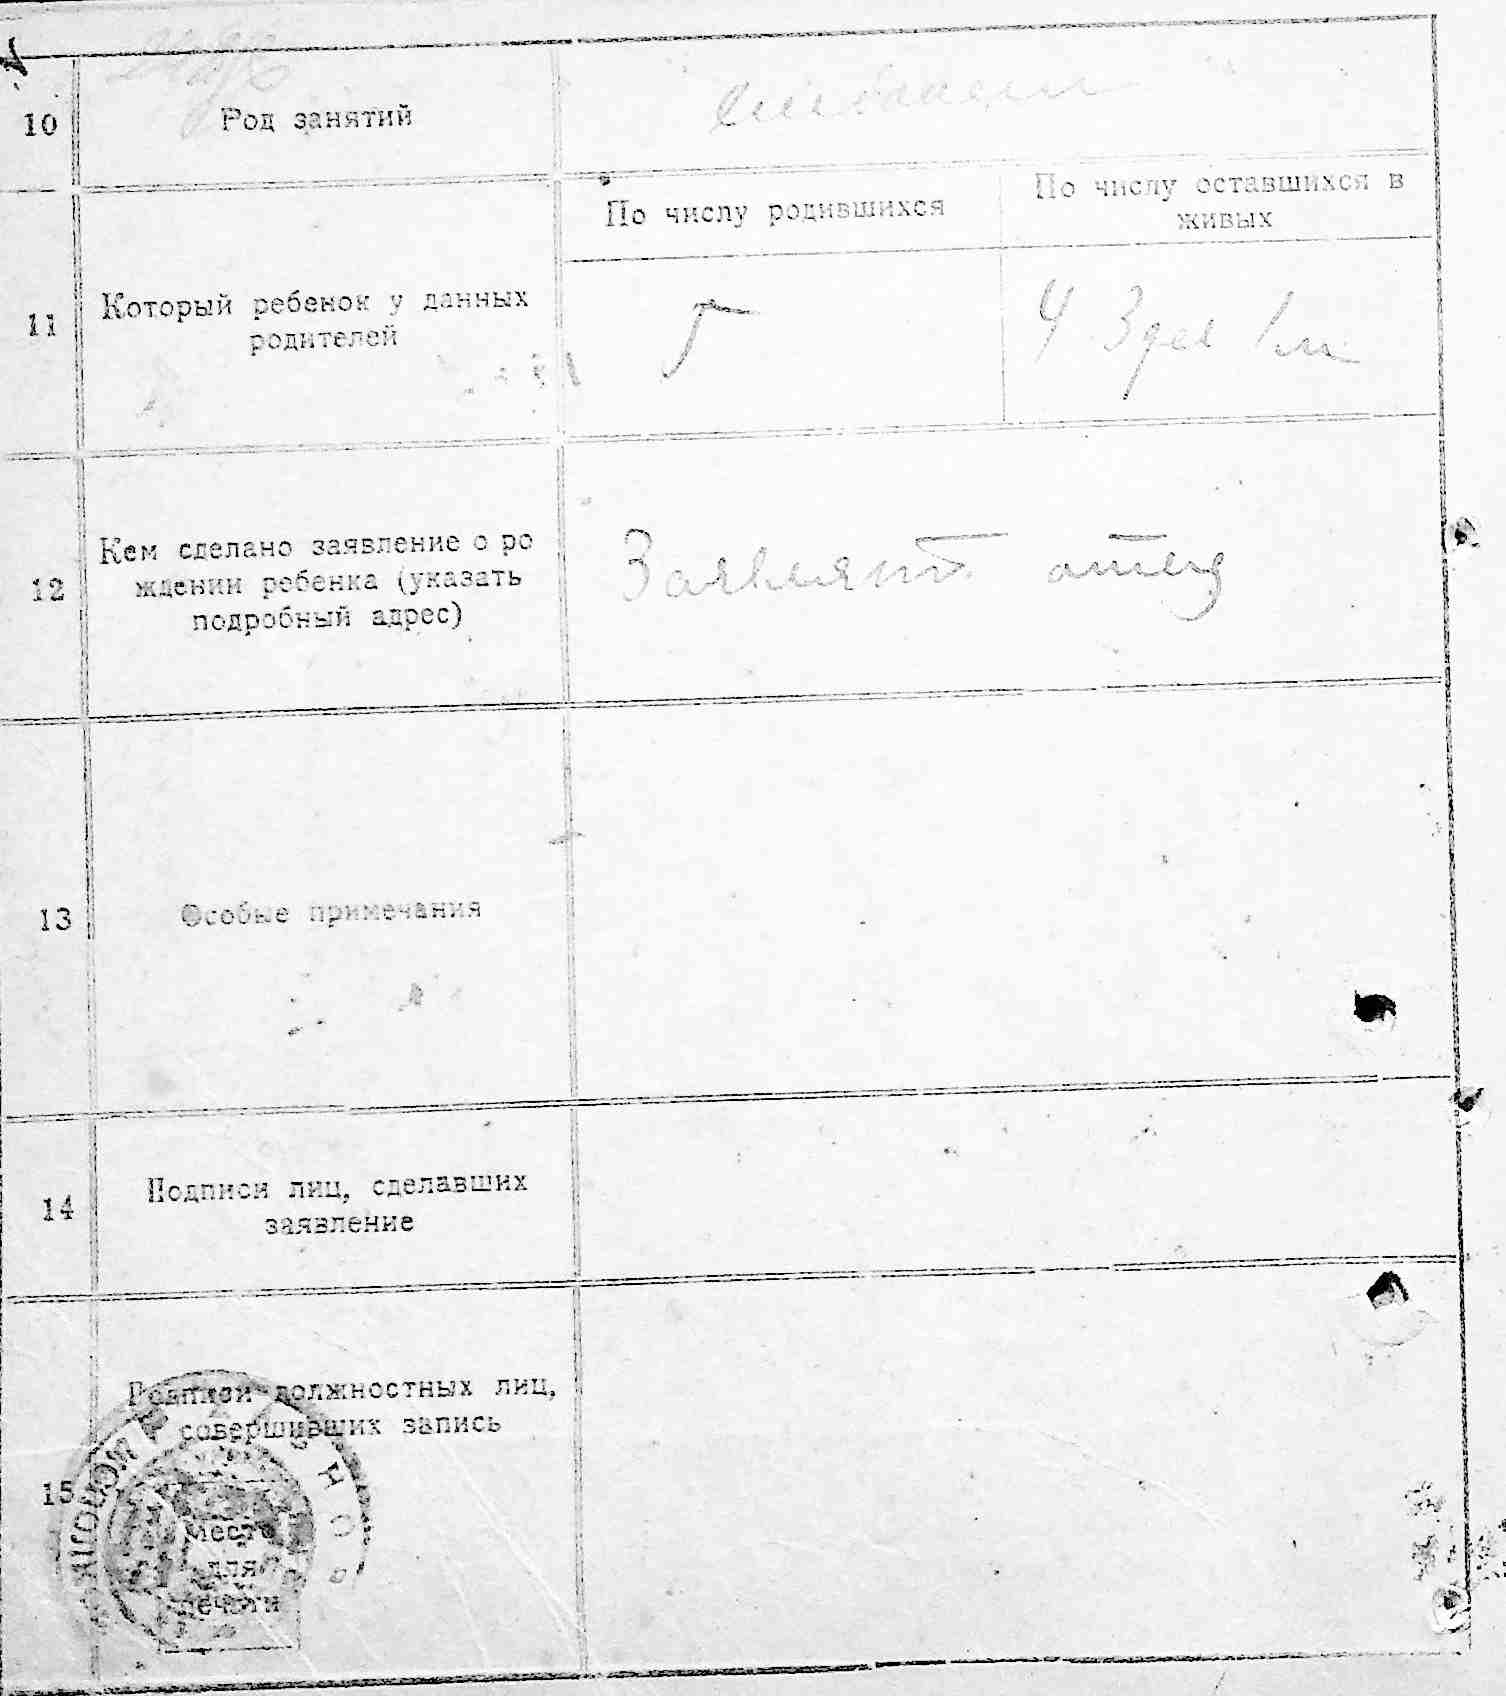 10
Род занятий
По числу родившихся
По числу оставшихся в
живых
11
Который ребенок у данных
родителей
5
4
12
Кем сделано заявление о ро
ждении ребенка (указать
подробный адрес)
отец
13
Особые примечания
14
Подписи лиц, сделавших
заявление
15
Подписи должностных лиц,
совершивших запись
Место
для
печати